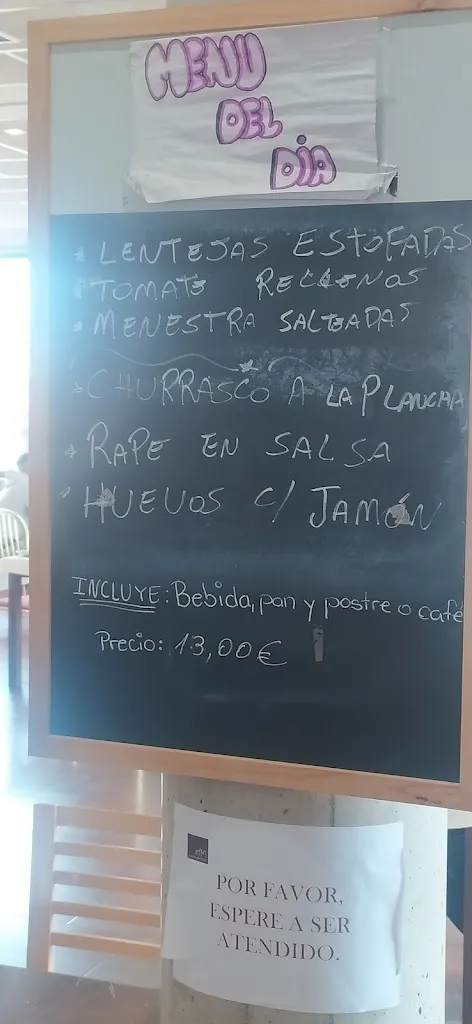 MENU
DEL
DIA
LENTEJAS ESTOFADAS
TOMATE RELLENOS
MENESTRA SALTEADAS
CHURRASCO A LA PLANCHA
RAPE EN SALSA
HUEVOS C/ JAMÓN
INCLUYE: Bebida, pan y postre o café
Precio: 13,00€
POR FAVOR,
ESPERE A SER
ATENDIDO.